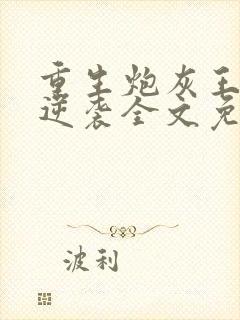 重生炮灰王
逆袭全文免
波利